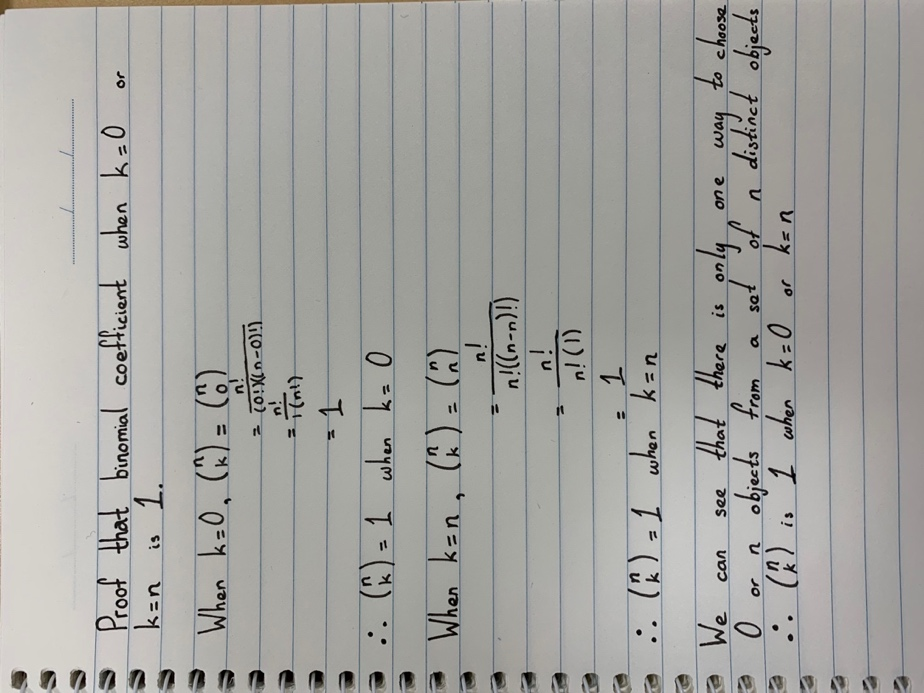 Proof that binomial coefficient when k=0 or
k=n is 1.
When k=0, (n k) = (n 0)
= n! / (0!)((n-0)!)
= n! / 1(n!)
= 1
∴ (n k) = 1 when k=0
When k=n, (n k) = (n n)
= n! / n!((n-n)!)
= n! / n!(1)
= 1
∴ (n k) = 1 when k=n
We can see that there is only one way to choose
0 or n objects from a set of n distinct objects
∴ (n k) is 1 when k=0 or k=n